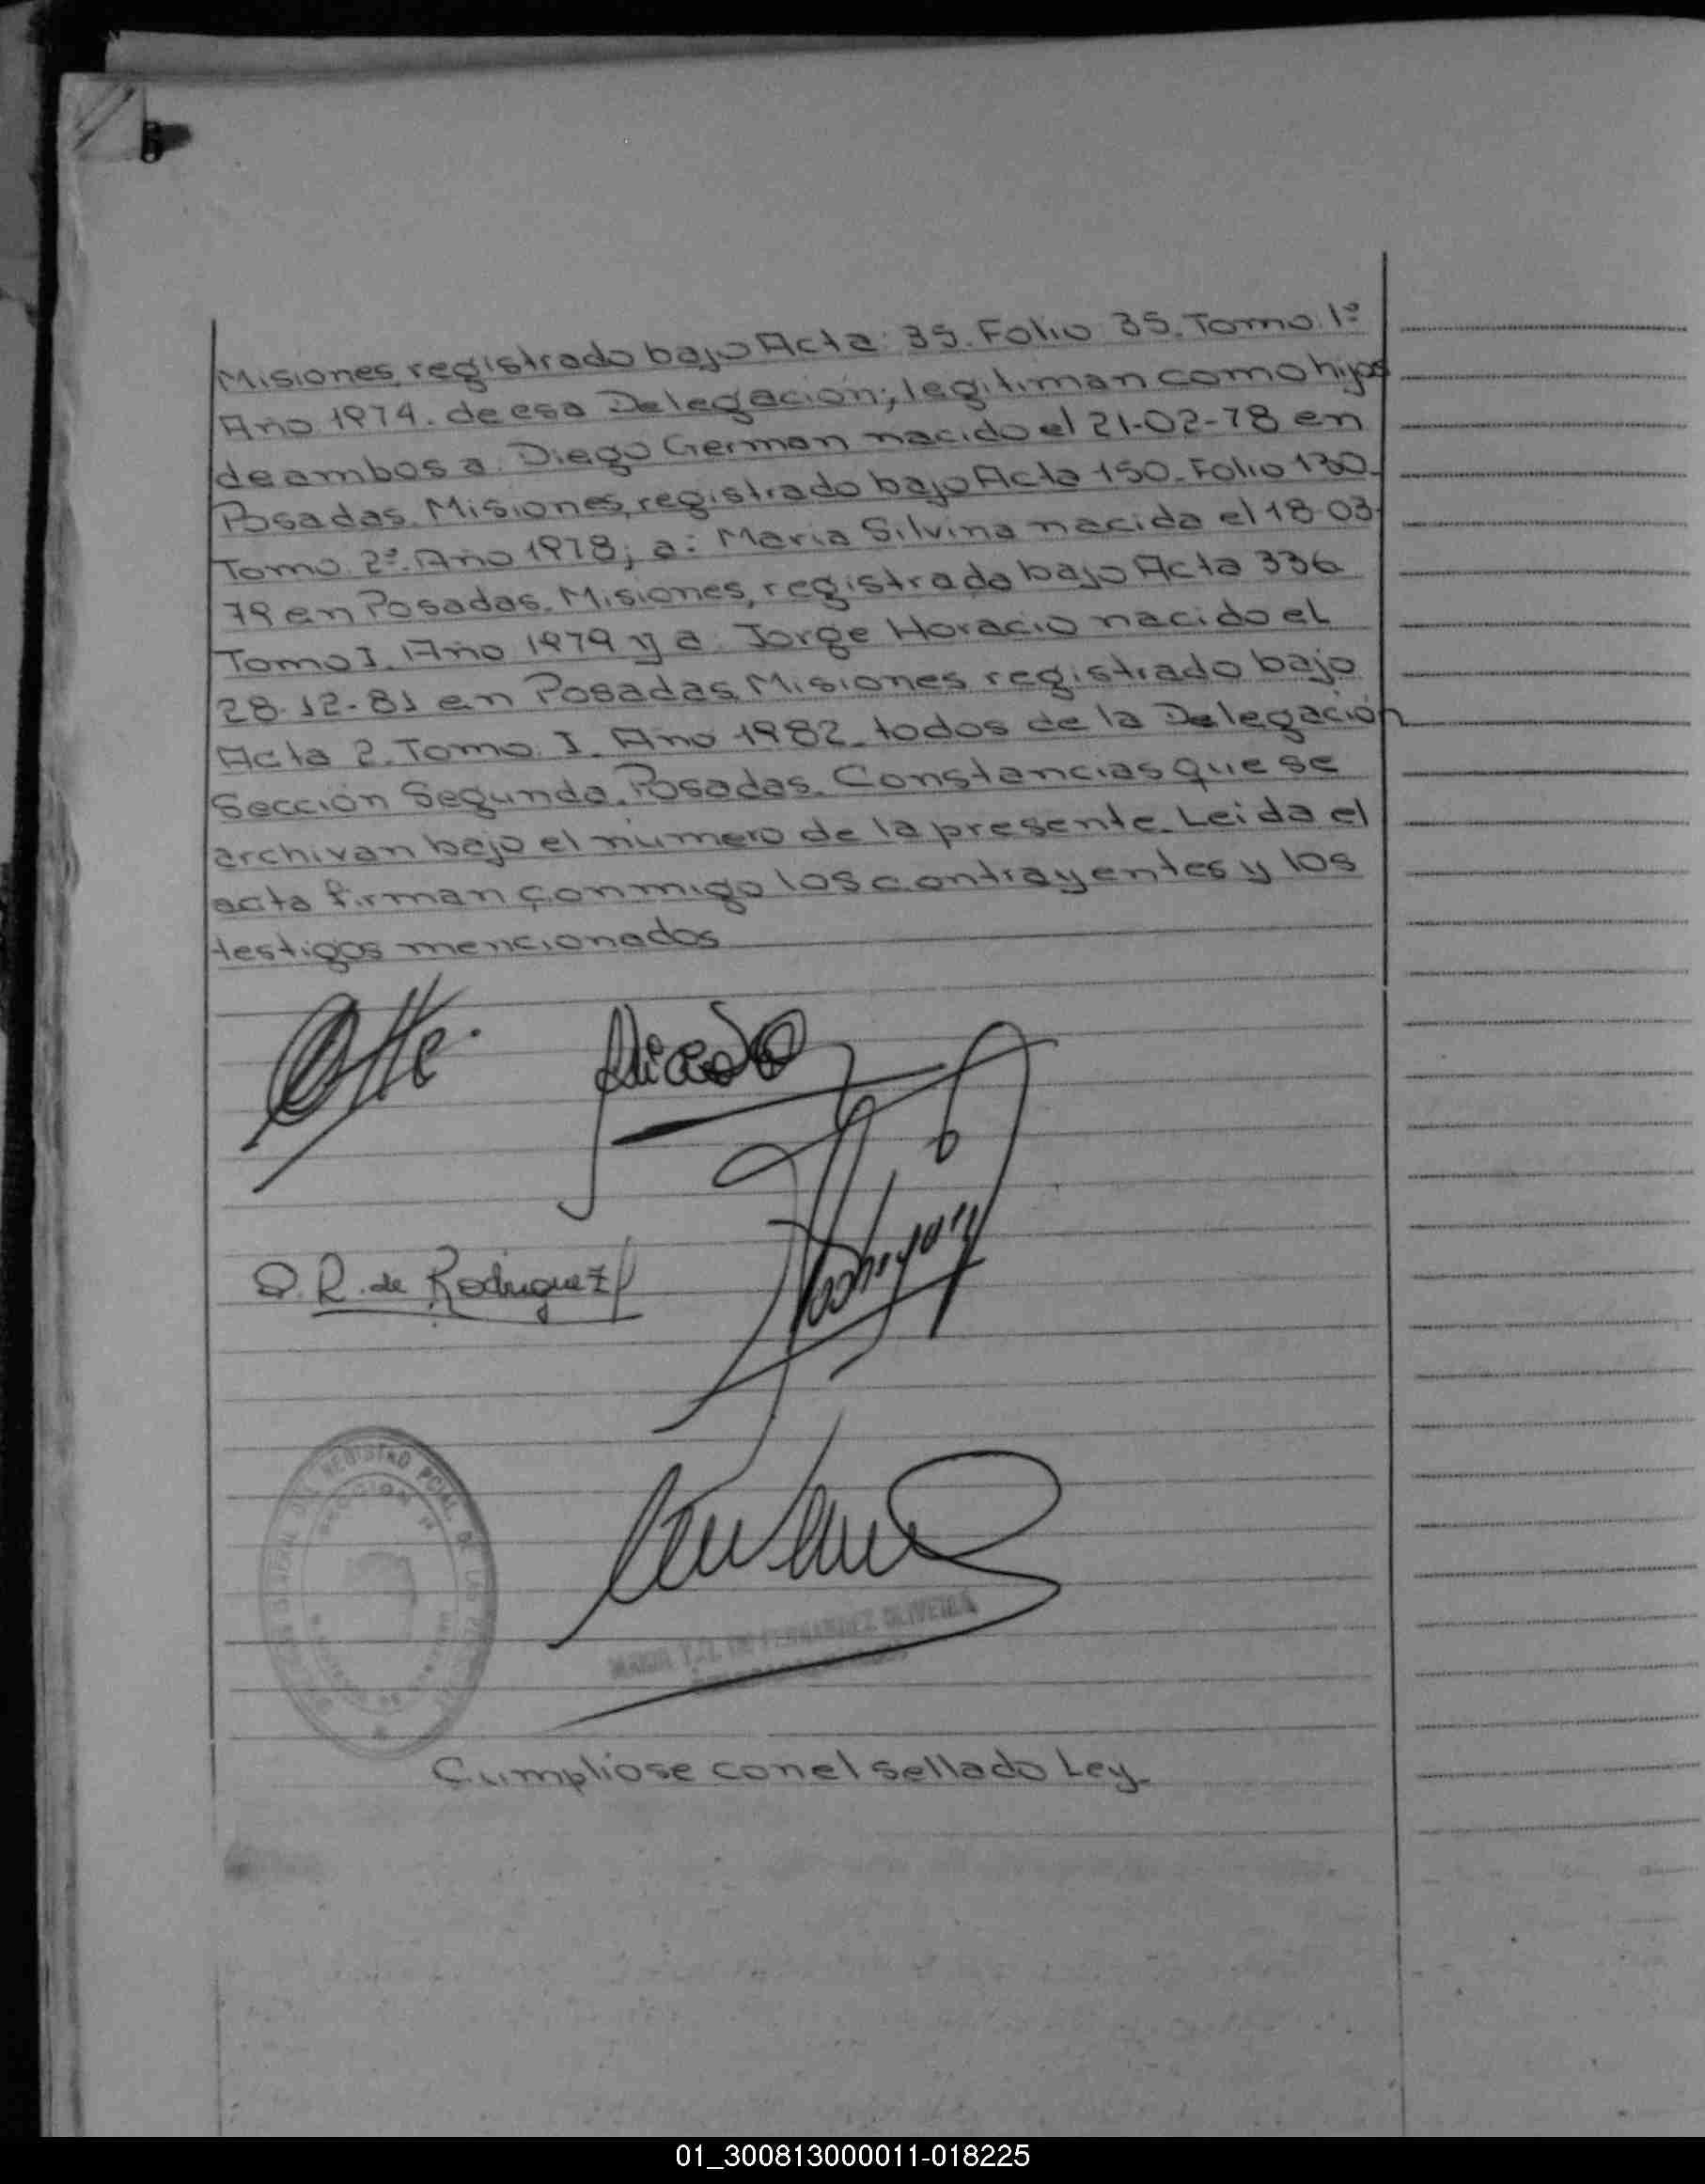 Misiones, registrado bajo Acta: 35. Folio 35. Tomo. 1º
Año 1974. de esa Delegación; legitiman como hijos
de ambos a: Diego German nacido el 21-02-78 en
Posadas. Misiones, registrado bajo Acta 150. Folio 130.
Tomo. 2º. Año 1978; a: Maria Silvina nacida el 18-03-
79 en Posadas. Misiones, registrada bajo Acta 336
Tomo I. Año 1979 y a: Jorge Horacio nacido el
28-12-81 en Posadas, Misiones registrado bajo
Acta 2. Tomo. I. Año 1982. todos de la Delegación
Sección Segunda. Posadas. Constancias que se
archivan bajo el número de la presente. Leida el
acta firman conmigo los contrayentes y los
testigos mencionados
R. de Rodriguez
REGISTRO PCIAL. DE LAS
SECCION
DE FERNANDEZ OLIVEIRA
Cumpliose con el sellado Ley.
01_300813000011-018225